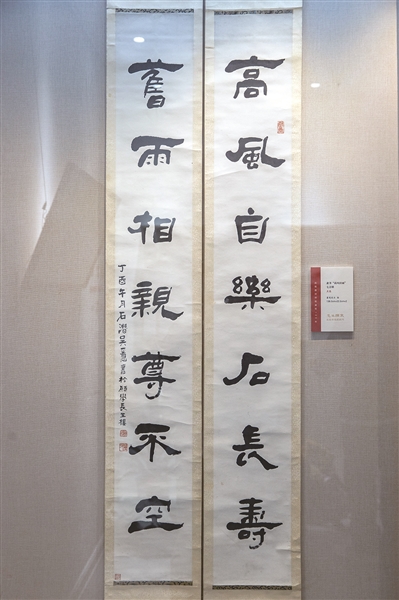 高風自樂石長壽
舊雨相親尊不空
丁酉午月石潛吳